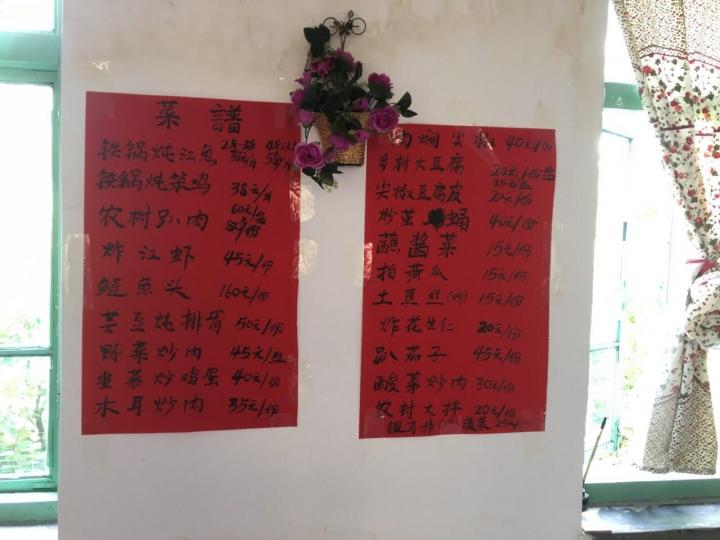 菜譜
铁锅炖江鱼
铁锅炖笨鸡 38元/斤
农村趴肉 60元/盆
80元/份
炸江虾 45元/份
鲢鱼头 160元/份
芸豆炖排骨 50元/份
野菜炒肉 45元/盘
韭菜炒鸡蛋 40元/份
木耳炒肉 35元/份
肉焖尖椒 40元/份
乡村大豆腐 20元/份
35元/盆
尖椒豆腐皮 22元/份
炒茧蛹 40元/份
蘸酱菜 15元/份
拍黄瓜 15元/份
土豆丝(炒) 15元/份
炸花生仁 20元/份
趴茄子 45元/份
酸菜炒肉 30元/份
农村大拌 20元/份
菠菜